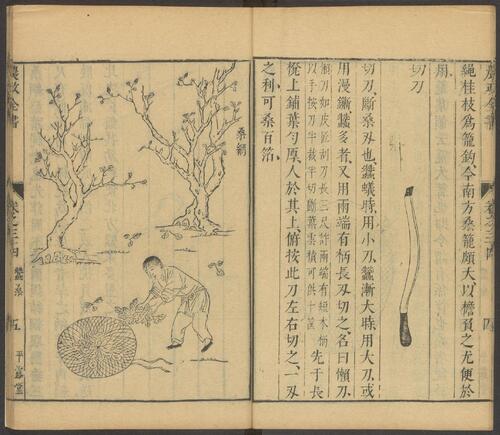 繩桂枝爲籠鉤今南方桑籠頗大以檐負之尤便於
用
切刀
切刀斷桑刃也蠶蟻時用小刀蠶漸大時用大刀或
用漫鐁蠶多者又用兩端有柄長刃切之名曰懶刀
懶刀如皮匠刮刀長三尺許兩端有短木柄
以手按刀半裁半切斷葉雲積可供十筐
先于長
櫈上鋪葉勻厚人於其上俯按此刀左右切之一刃
之利可桑百箔
桑網
農政全書
卷之三十四
蠶桑
五
平露堂